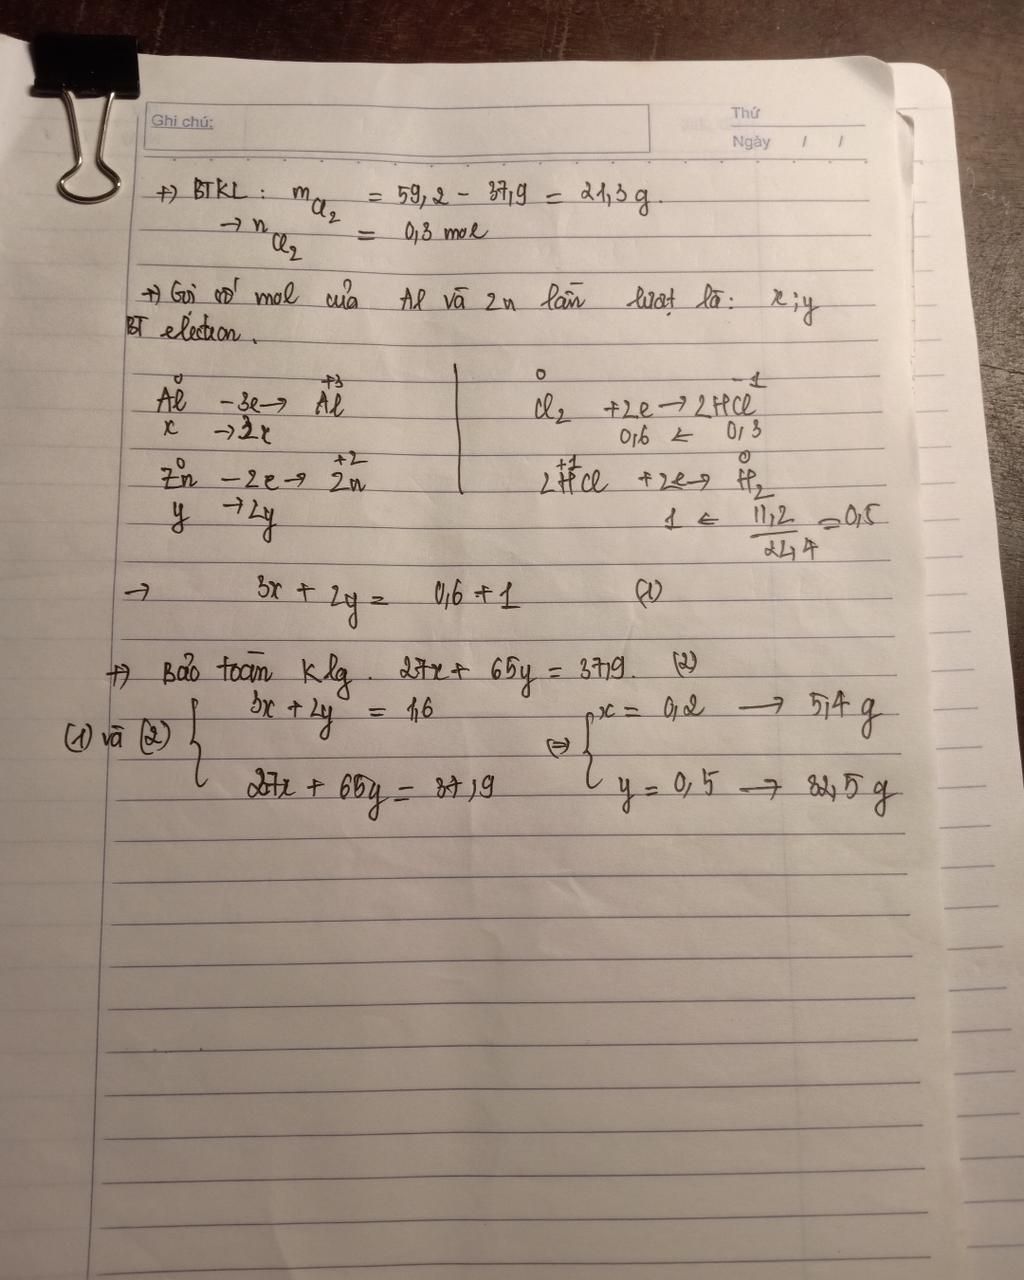 Ghi chú:
Thứ
Ngày / /
+) BTKL : mCl2 = 59,2 - 37,9 = 21,3 g.
→ nCl2 = 0,3 mol
+) Gọi số mol của Al và Zn lần lượt là: x ; y
BT electron.
0 +3
Al -3e → Al
x → 3x
0 +2
Zn - 2e → Zn
y → 2y
0 -1
Cl2 +2e → 2HCl
0,6 ← 0,3
+1 0
2HCl +2e → H2
1 ← 11,2/22,4 = 0,5
→ 3x + 2y = 0,6 + 1 (1)
+) Bảo toàn Klg. 27x + 65y = 37,9. (2)
(1) và (2) { 3x + 2y = 1,6 ⇔ { x = 0,2 → 5,4 g
27x + 65y = 37,9 y = 0,5 → 32,5 g